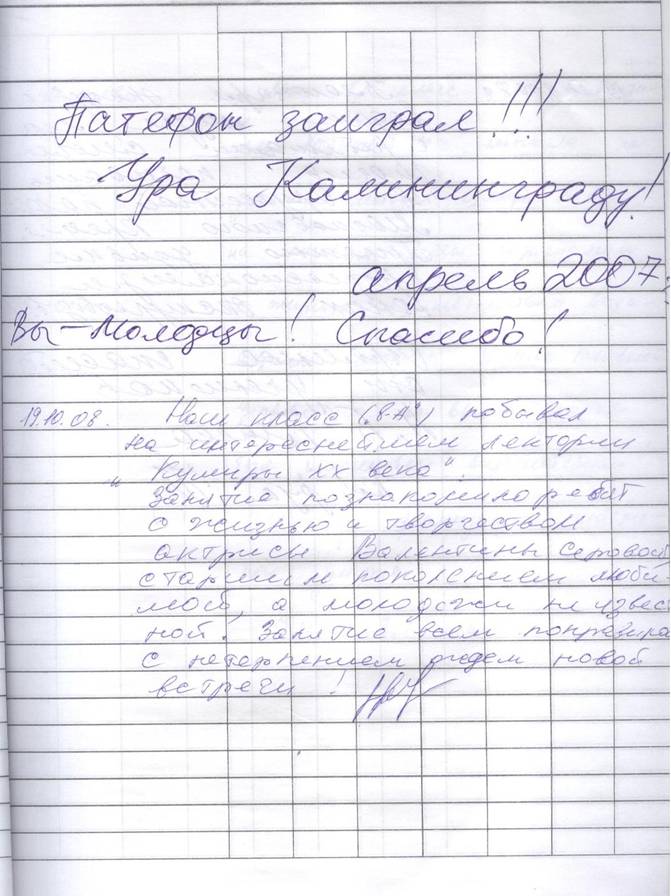 Патефон заиграл!!!
Ура Калининграду!
апрель 2007,
Вы – молодцы! Спасибо!
19.10.08. Наш класс („8-А") побывал
на интереснейшем лектории
„Кумиры XX века".
Занятие познакомило ребят
с жизнью и творчеством
актрисы Валентины Серовой
старшим поколением люби
мой, а молодежи неизвес
ной. Занятие всем понравила
с нетерпением ждем новой
встречи!